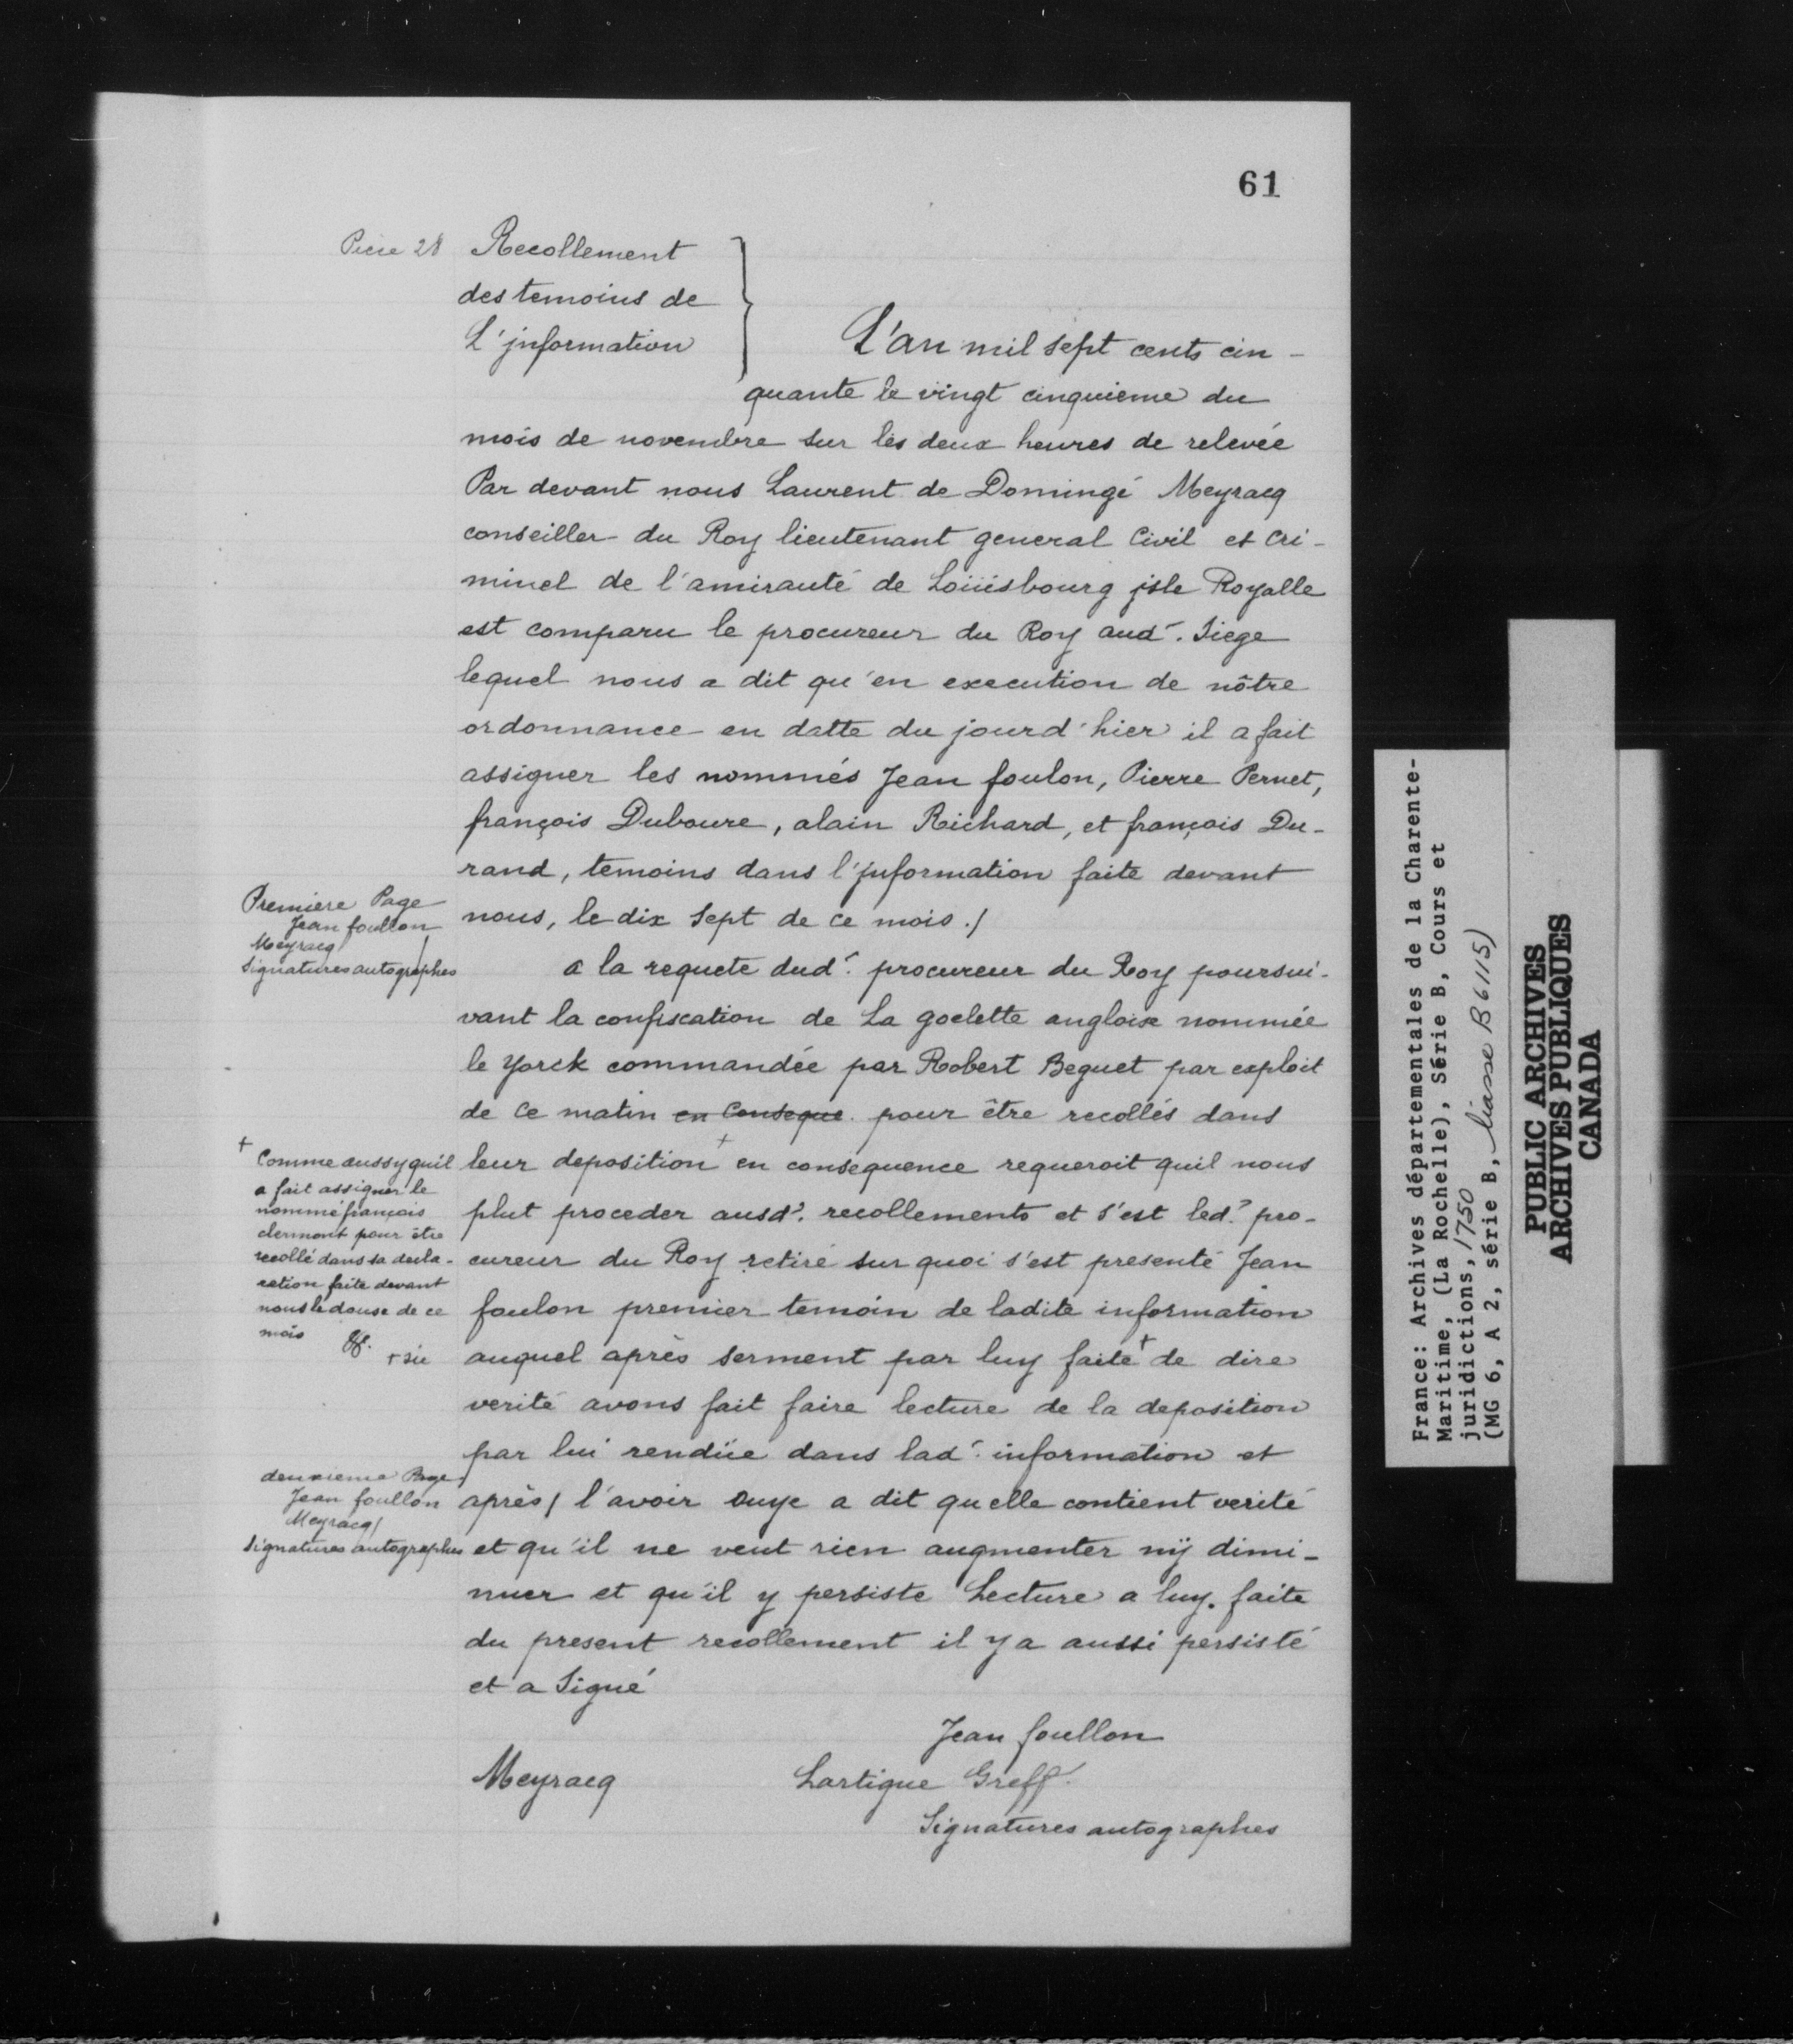 61
Piece 28
Recollement
des temoins de
L'jnformation
L'an mil sept cents cin-
quante le vingt cinquieme du
mois de novembre sur les deux heures de relevée
Par devant nous Laurent de Domingé Meyracq
conseiller du Roy lieutenant general Civil et Cri-
minel de l'amirauté de Loüisbourg jsle Royalle
est comparu le procureur du Roy aud. Siege
lequel nous a dit qu'en execution de nôtre
ordonnance en datte du jourd'hier il a fait
assigner les nommés Jean foulon, Pierre Pernet,
françois Duboure, alain Richard, et françois Du-
rand, temoins dans l'jnformation faite devant
nous, le dix Sept de ce mois./
Premiere Page
Jean foullon
Meyracq/
Signatures autographes
a la requete dud. procureur du Roy poursui-
vant la confiscation de La goelette angloise nommée
le Yorck commandée par Robert Beguet par exploit
de Ce matin en Conseque. pour être recollés dans
leur deposition + en consequence requeroit quil nous
plut proceder ausd. recollements et s'est led. pro-
cureur du Roy retiré sur quoi s'est presenté Jean
foulon premier temoin de ladite information
auquel après serment par luy faite + de dire
verité avons fait faire lecture de la deposition
par lui rendüe dans lad. information et
après/ l'avoir ouye a dit quelle contient verité
et qu'il ne veut rien augmenter nÿ dimi-
nuer et qu'il y persiste Lecture a luy. faite
du present recollement il y a aussi persisté
et a Signé
+ Comme aussy quil
a fait assigner le
nommé françois
clermont pour être
recollé dans sa decla-
ration faite devant
nous le douse de ce
mois
+ sic
deuxieme Page
Jean foullon
Meyracq/
Signatures autographes
Jean foullon
Meyracq Lartigue Greff.
Signatures autographes
France: Archives départementales de la Charente-
Maritime, (La Rochelle), Série B, Cours et
juridictions, 1750
(MG 6, A 2, série B, liasse B 6115)
PUBLIC ARCHIVES
ARCHIVES PUBLIQUES
CANADA